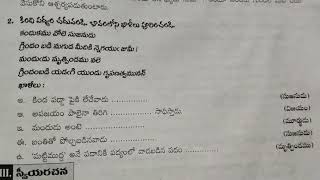 వేసుకొని ఆశ్చర్యపడుతుంటారు.
2. కింది పద్యాన్ని చదవండి. భావంలోని ఖాళీలు పూరించండి.
కందుకము వోలె సుజనుడు
గ్రిందంబడి మగుడ మీదికి న్నెగయు జుమీ!
మందుడు మృత్పిండము వలె
గ్రిందంబడి యడంగి యుండు గృపణత్వమునన్
ఖాళీలు :
అ. కింద పడ్డా పైకి లేచేవాడు .................... (సుజనుడు)
ఆ. అపజయం పాలైనా తిరిగి .................... సాధిస్తాడు. (విజయం)
ఇ. మందుడు అంటే .................... (మూర్ఖుడు)
ఈ. బంతితో పోల్చబడినవాడు .................... (సుజనుడు)
ఉ. 'మట్టిముద్ద' అనే పదానికి పద్యంలో వాడబడిన పదం .................... (మృత్పిండము)
III. స్వీయరచన